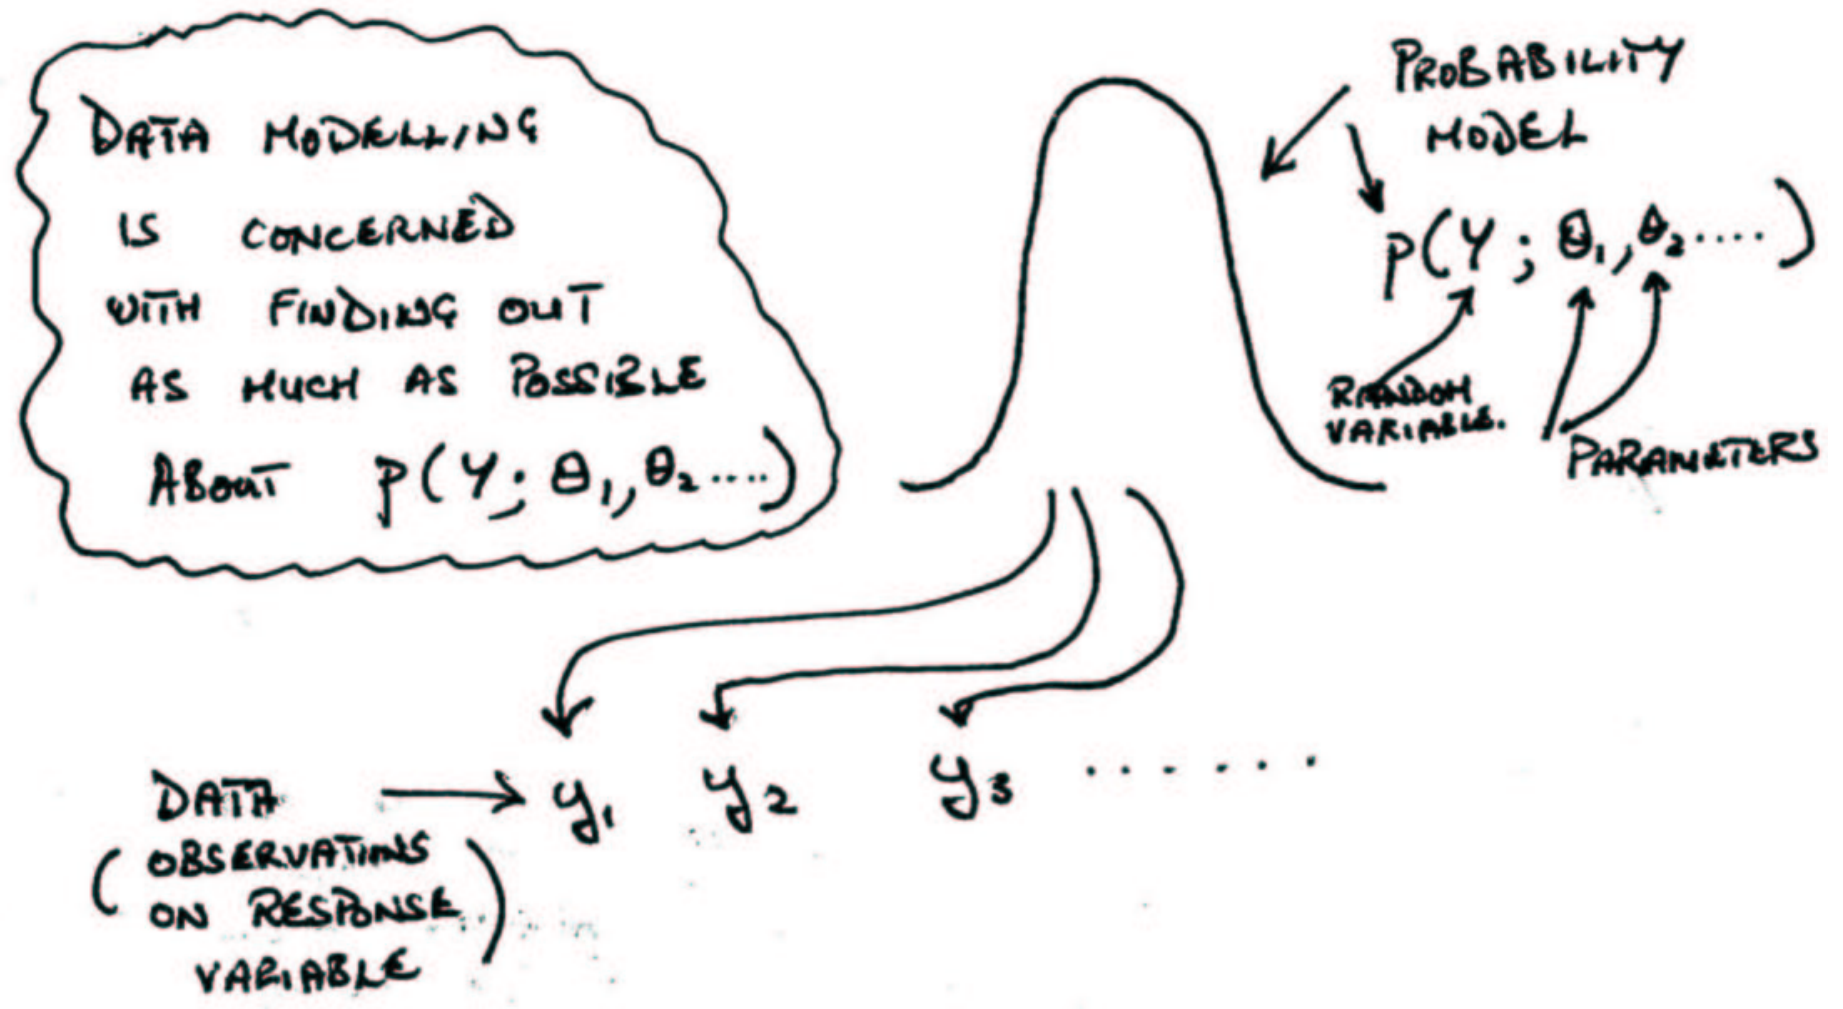 DATA MODELLING
IS CONCERNED
WITH FINDING OUT
AS MUCH AS POSSIBLE
ABOUT p(Y; θ₁, θ₂ ....)
PROBABILITY
MODEL
p(Y; θ₁, θ₂ .....)
RANDOM
VARIABLE.
PARAMETERS
DATA → y₁ y₂ y₃ ......
(OBSERVATIONS
ON RESPONSE
VARIABLE)